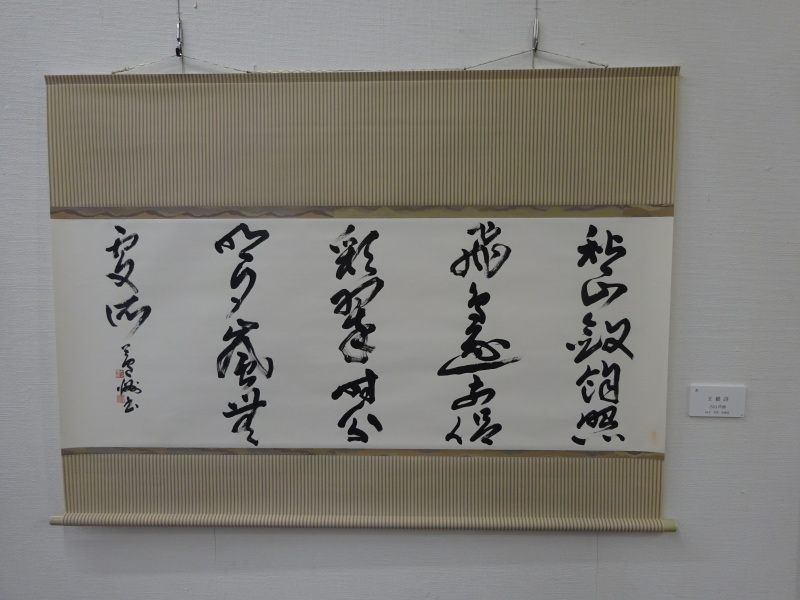 秋山斂餘照
飛鳥逐前侶
彩翠時分
明夕嵐無
處所
書
王維詩